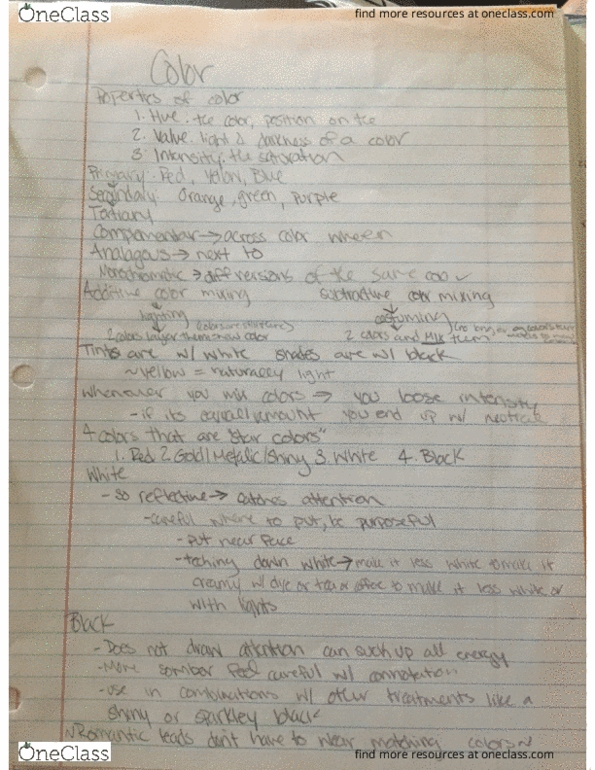 OneClass
find more resources at oneclass.com
Color
Properties of color
1. Hue. the color, position on the
2. Value. light & darkness of a color
3. Intensity. the saturation
Primary: Red, Yellow, Blue
Secondary: Orange, green, purple
Tertiary
Complementary → across color wheel
Analagous → next to
Monochromatic → diff versions of the same color
Additive color mixing subtractive color mixing
lighting costuming
2 colors layer them new color 2 colors and mix them
Tints are w/ white shades are w/ black
~ yellow = naturally light
whenever you mix colors → you loose intensity
- if its equal amount you end up w/ neutral
4 colors that are "star colors"
1. Red 2. Gold/Metalic/Shiny 3. White 4. Black
White
- so reflective → catches attention
- careful where to put, be purposeful
- put near face
- teching down white → make it less white to make it
creamy w/ dye or tea or coffee to make it less white or
with lights
Black
- Does not draw attention can such up all energy
- More somber feel careful w/ connotation
- use in combinations w/ other treatments like a
shiny or sparkley black
~ Romantic leads don't have to wear matching colors ~
OneClass
find more resources at oneclass.com